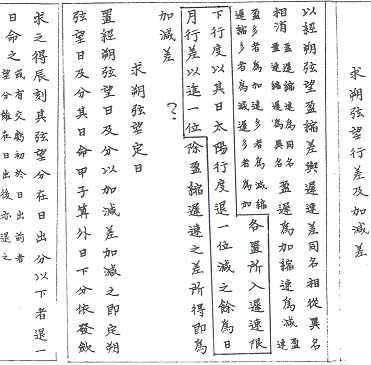 求朔弦望行差及加減差
以經朔弦望盈縮差與遲速差同名相從異名
相消盈遲縮速為同名盈速縮遲為異名盈遲為加縮速為減盈
盈多者為加速多者為減縮遲縮多者為減遲多者為加各置所入遲速限
下行度以其日太陽行度退一位減之餘為日
月行差以進一位除盈縮遲速之差所得即為
加減差 ?
求朔弦望定日
置經朔弦望日及分以加減差加減之即定朔
弦望日及分其日命甲子算外日下分依發斂
求之得辰刻其弦望分在日出分以下者退一
日命之或有交虧初於日出前者望分雖在日出後亦退之